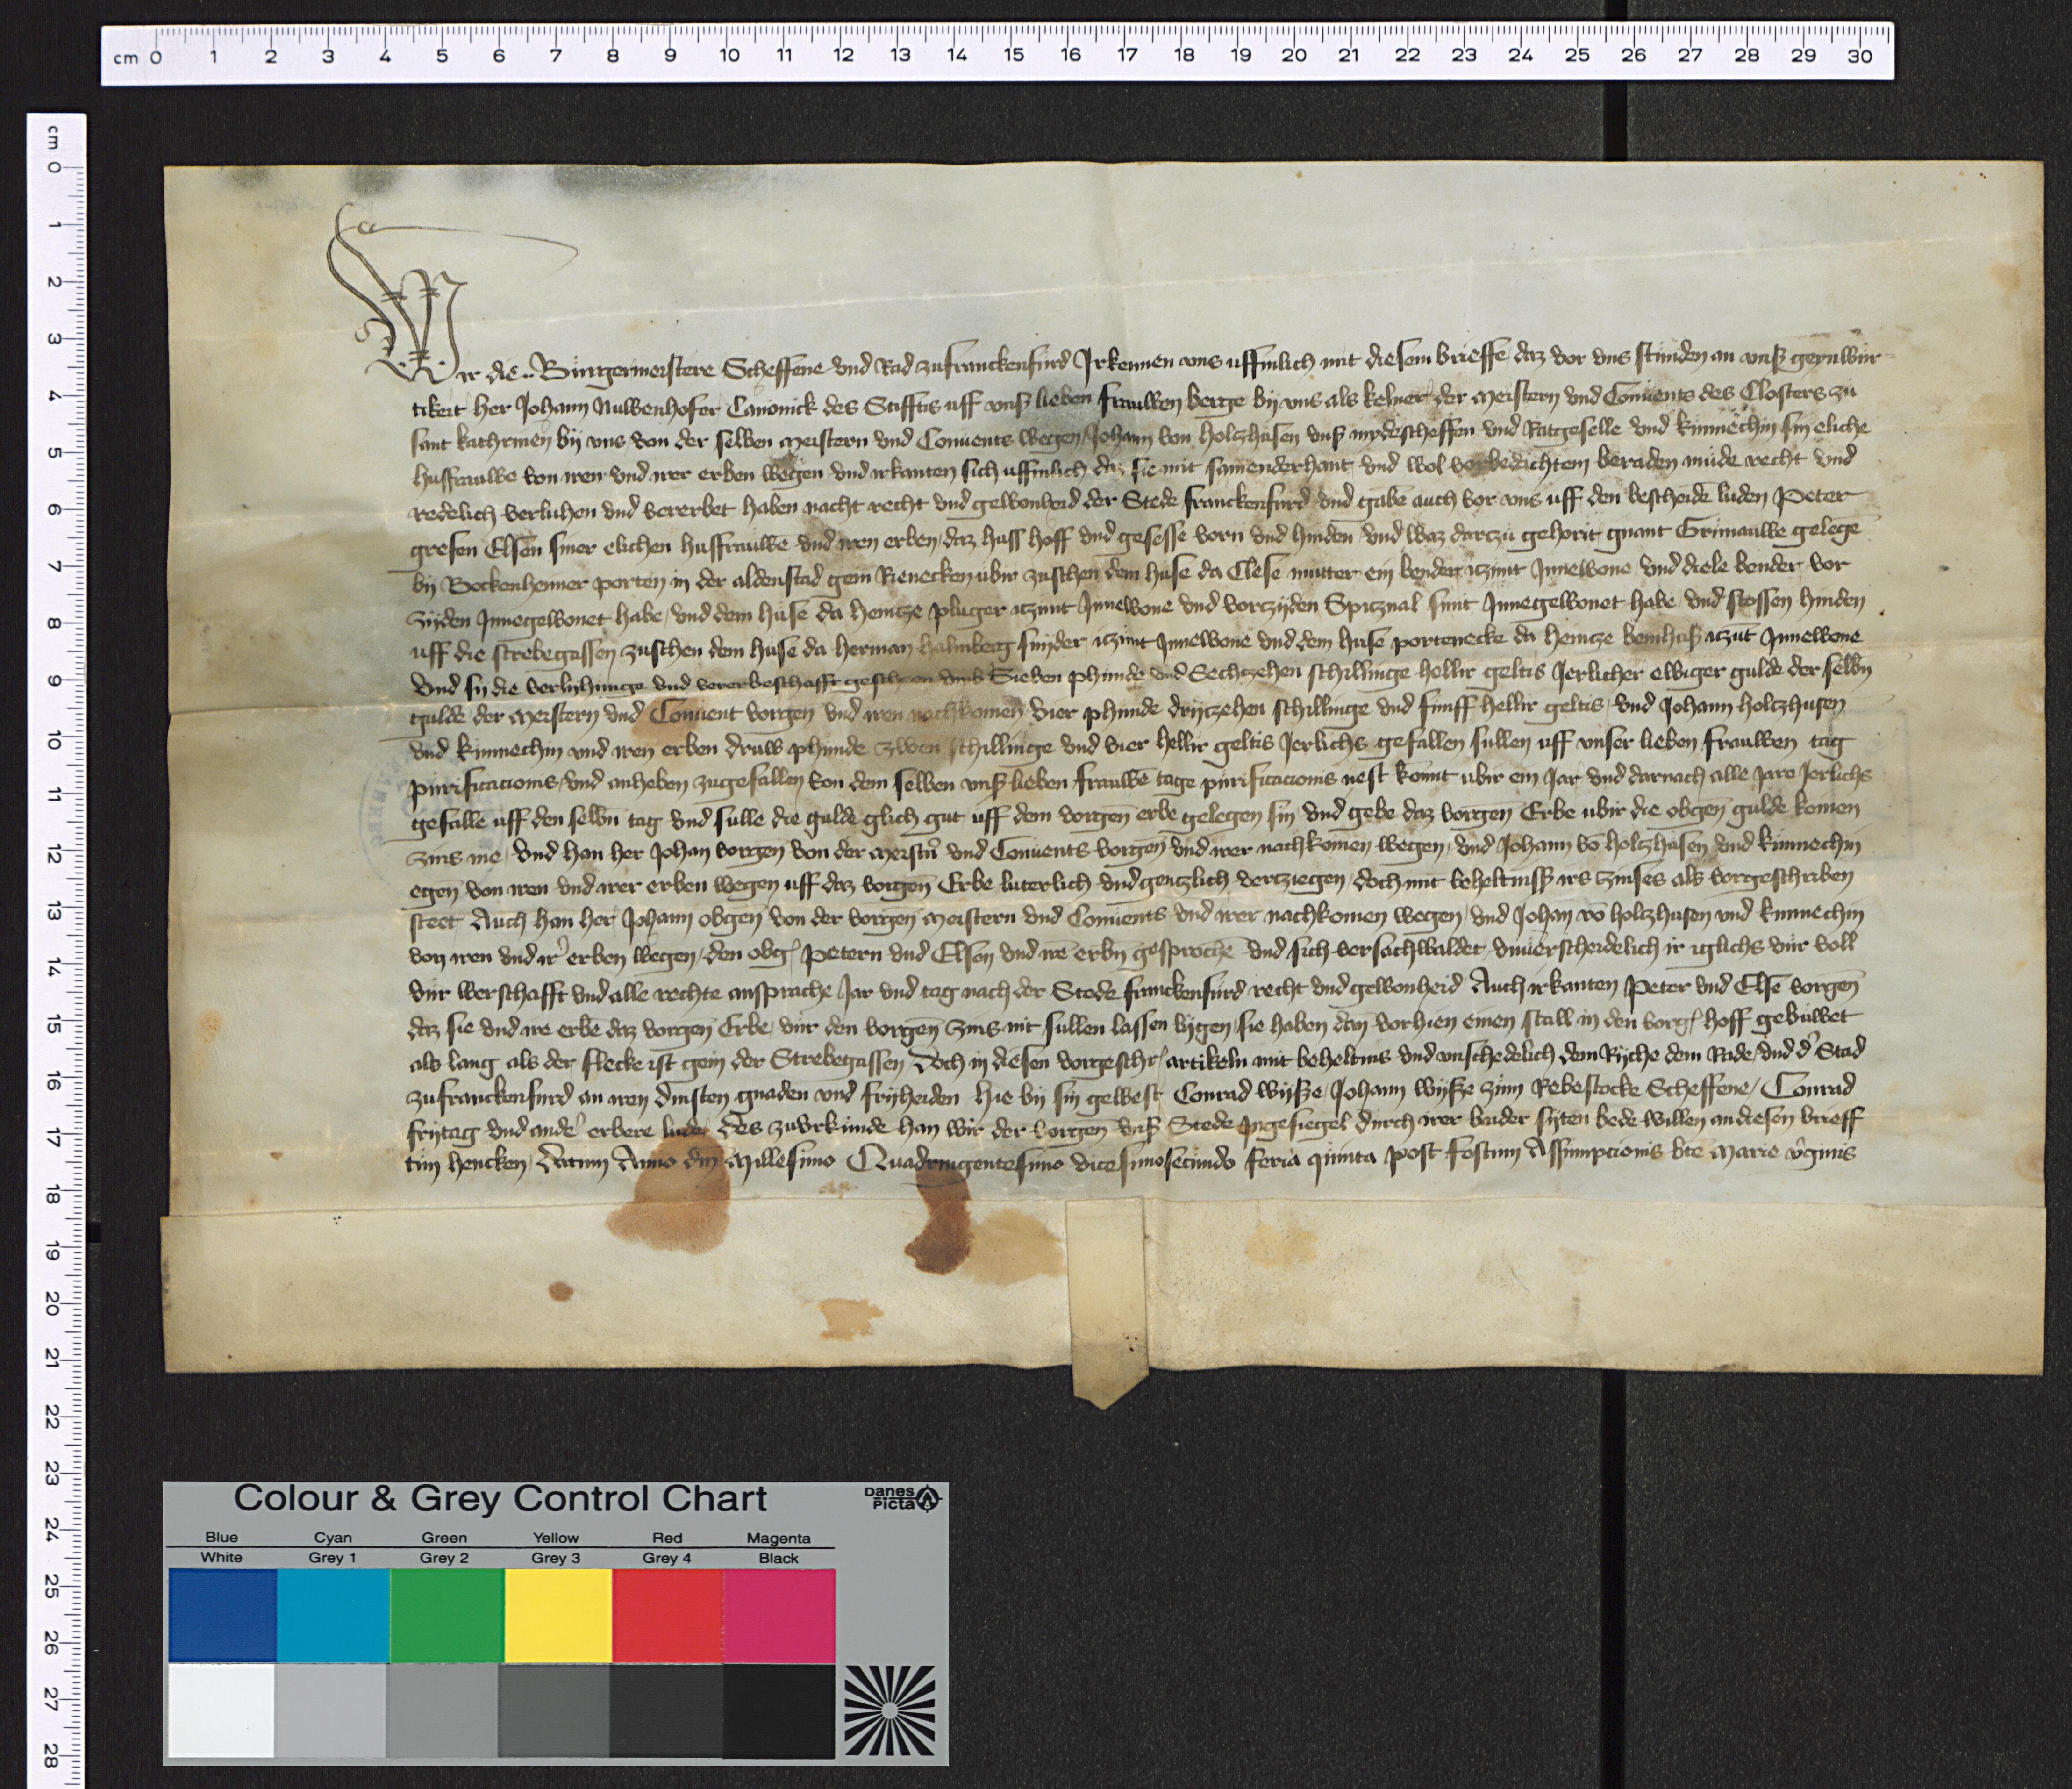 Wir die .. Burgermeistere Scheffene und Rad zufranckenfurd Irkennen uns uffinlich mit diesem brieffe daz vor uns stunden an unß geynwur
tikeit her Johann Nuwenhofer Canonick des Stifftis uff unß lieben frauwen berge by uns als kelner der meistern und Conuents des Closters zu
sant kathrinen by uns von der selben meistern und Conuents wegen Johann von holtzhusen unß mydescheffen und Ratgeselle und kinnechin sin eliche
husfrauwe von iren und irer erben wegen und irkanten sich uffinlich daz sie mit samenderhant und wol vorbedichtem beraden mude recht und
redelich verluhen und vererbet haben nacht recht und gewonheid der Stede franckenfurd und gabē auch vor uns uff den bescheidē luden Peter
gresen Elsen siner elichen husfrauwe und iren erben daz huss hoff und gesesse vorn und hinden und waz darzu gehorit gnant Grinauwe gelegē
by Bockenheimer porten in der aldenstad gein Rienecken ubir zuschen dem huse da Clese mutter ein bender itzunt Innewone und diele bender vor
zijden Innegewonet habe und dem huse da heintze pluger itzunt Innewone und vorczijden Spitznal smit Innegewonet habe und stossen hinden
uff die strebegassen zuschen dem huse da herman halmberg snyder itzunt Innewone und dem huse portenecke da heintze beinhuß itzūt Innewone
und sij die verlyhunge und vererbeschafft gescheen umb Sieben phunde und Sechtzehen schillinge hellir geltis Jerlicher ewiger gulde der selbn
gulde der meistern und Conuent vorgen und iren nachkomen vier phunde dritzehen schillinge und funff hellir geltis und Johann holtzhusen
und kinnechin und iren erben druw phunde zwen schillinge und vier hellir geltis Jerlichs gefallen sullen uff unser lieben frauwen tag
purificacionis und anheben zugefallen von dem selben unß lieben frauwē tage purificacionis nest komt ubir ein Jar und darnach alle Jare Jerlichs
gefalle uff den selbn tag und sulle die gulde glich gut uff dem vorgen erbe gelegen sin und gebe daz vorgen Erbe ubir die obgen gulde keinen
zins me und han her Johan vorgen von der meistn und Conuents vorgen und irer nachkomen wegen und Johann vō holtzhusen und kinnechin
egen von iren und irer erben wegen uff daz vorgen Erbe luterlich und gentzlich vertziegen doch mit beheltniß irs zinses als vorgeschriben
steet Auch han her Johann obgen von der vorgen meistern und Conuents und irer nachkomen wegen und Johan vō holtzhusen und kinnechin
von iren und ir erben wegen den obg Petern und Elsen und ire erbn gesprochē und sich versachwaldet unuerscheidelich ir iglichs vur voll
vur werschafft und alle rechte ansprache Jar und tag nach der Stede franckenfurd recht und gewonheid Auch irkanten Peter und Elsē vorgen
daz sie und ire erbē daz vorgen Erbe vur den vorgen zins nit sullen lassen lygen sie haben dan vorhien einen stall in den vorg hoff gebuwet
als lang als der flecke ist gein der Strebegassen Doch in diesen vorgeschr artikeln mit beheltnis und unschedelich dem Ryche dem Rade und d Stad
zufranckenfurd an iren dinsten gnaden und fryheiden Hie by sin gewest Conrad wysse Johann wysse zum Rebestocke Scheffene Conrad
frytag und ande erbere lude Des zuurkunde han wir der vorgen unß Stede Ingesiegel durch irer beider syten bede willen an diesen brieff
tun hencken Datum Anno dni Millesimo Quadringentesimo vicesimosecundo feria quinta post festum Assumpcionis bte Marie vginis
cm 0 1 2 3 4 5 6 7 8 9 10 11 12 13 14 15 16 17 18 19 20 21 22 23 24 25 26 27 28 29 30
cm 0 1 2 3 4 5 6 7 8 9 10 11 12 13 14 15 16 17 18 19 20 21 22 23 24 25 26 27 28
Colour & Grey Control Chart
Danes Picta
Blue Cyan Green Yellow Red Magenta
White Grey 1 Grey 2 Grey 3 Grey 4 Black